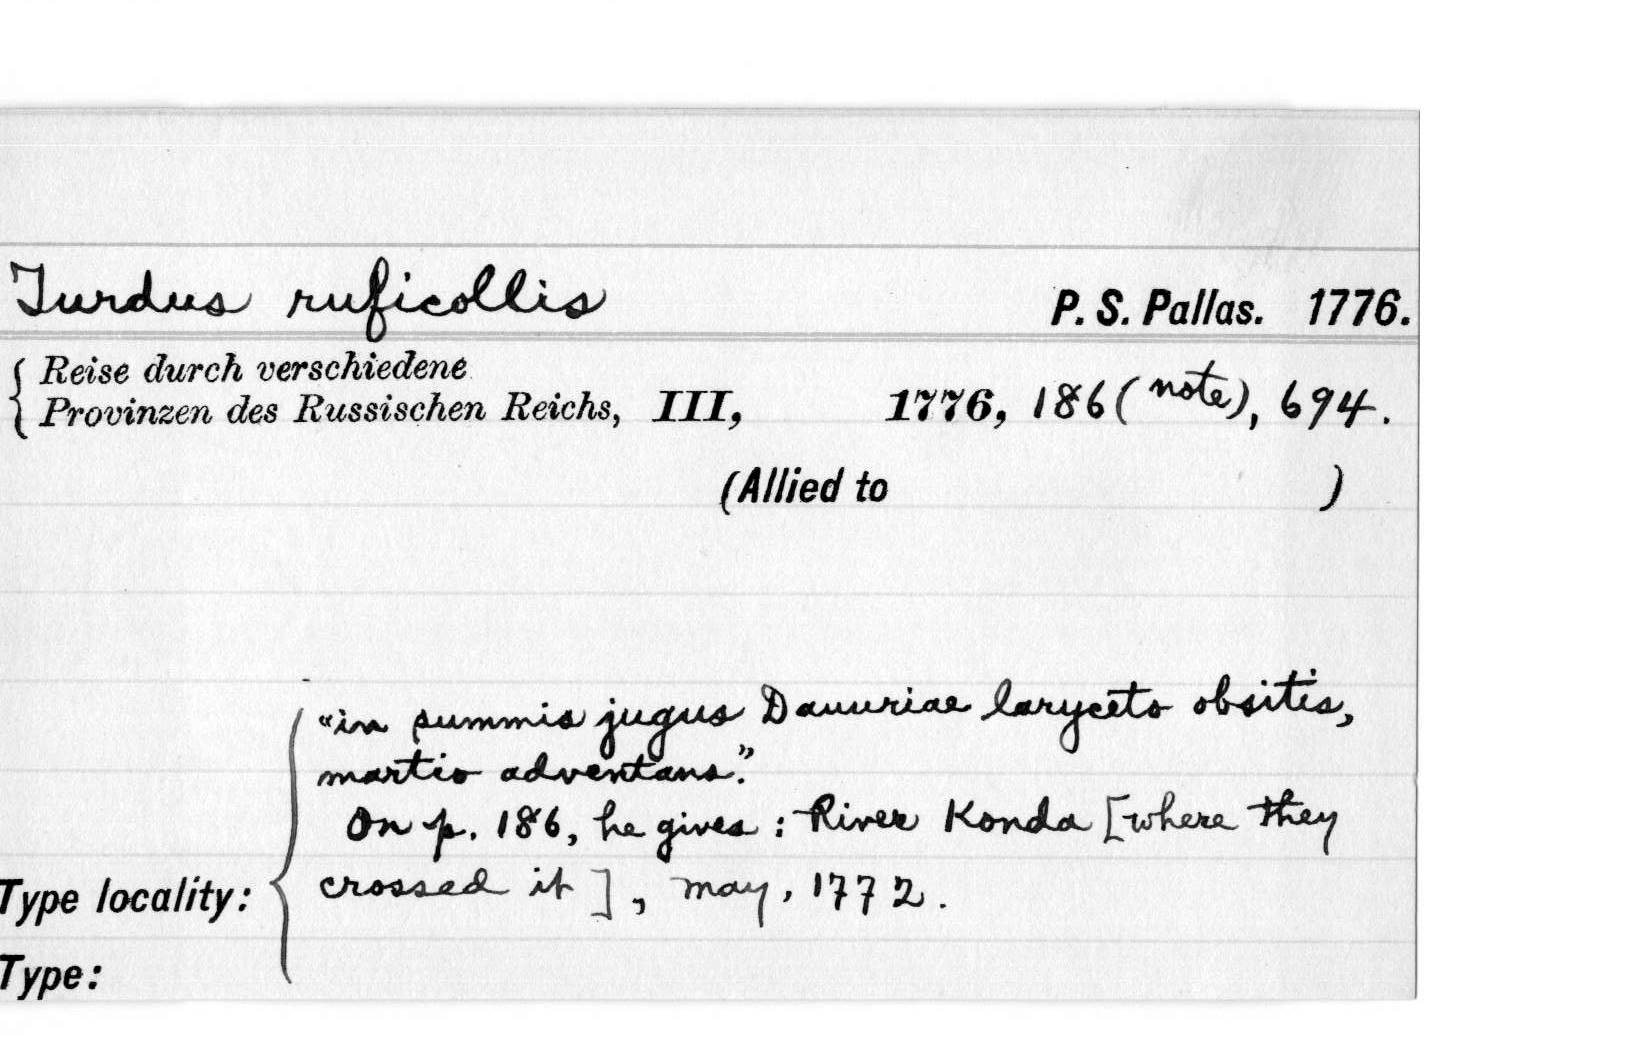 Turdus ruficollis P. S. Pallas. 1776.
Reise durch verschiedene
Provinzen des Russischen Reichs, III, 1776, 186 (note), 694.
(Allied to )
"in summis jugus Dauuriae laryceto obsitis,
martio adventans."
On p. 186, he gives: River Konda [where they
crossed it], May, 1772.
Type locality:
Type: